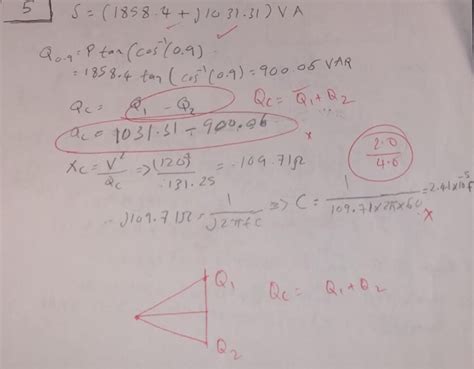 5 S = (1858.4 + j1031.31) VA
Q0.9 = P tan(cos⁻¹(0.9)
= 1858.4 tan(cos⁻¹(0.9) = 900.06 VAR
Qc = Q1 - Q2 Qc = Q1 + Q2
Qc = 1031.31 - 900.06 x
2.0
4.0
Xc = V²/Qc => (120)²/131.25 = -109.71Ω
- j109.71Ω = 1/j2πfC => C = 1/109.71x2πx60 = 2.41x10⁻⁵F
x
Q1 Qc = Q1 + Q2
Q2